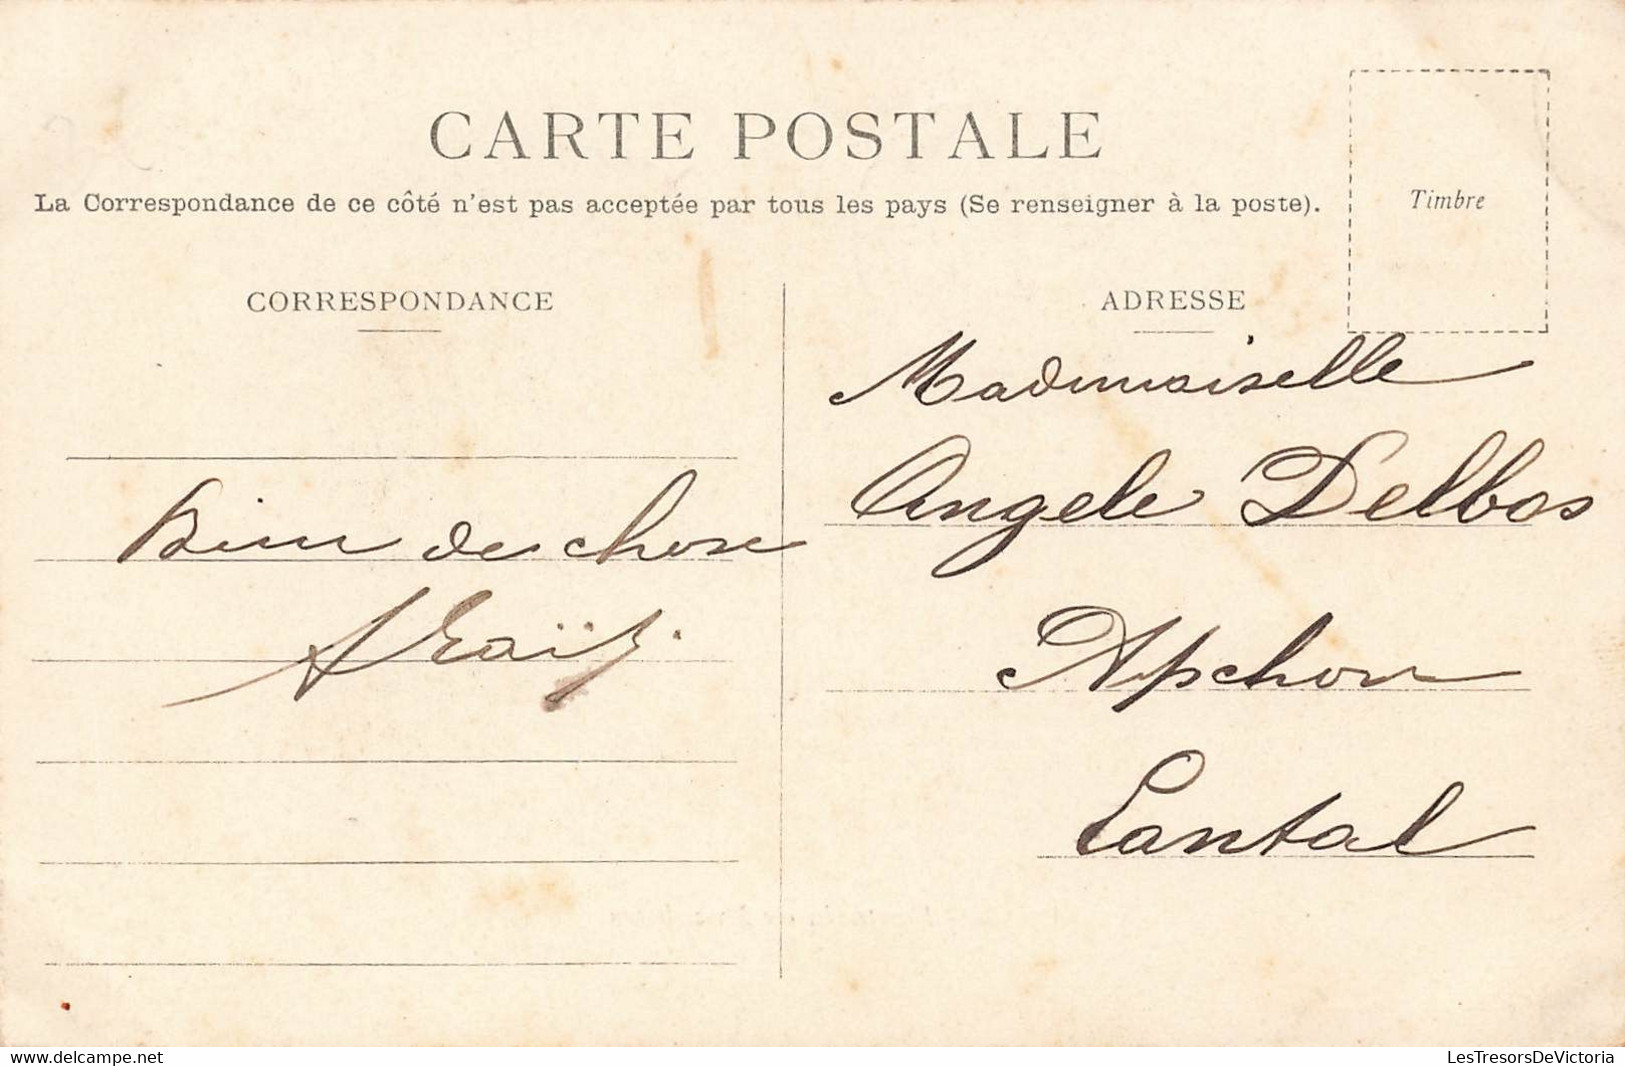 CARTE POSTALE
La Correspondance de ce côté n'est pas acceptée par tous les pays (Se renseigner à la poste).
Timbre
CORRESPONDANCE
Bien de chose
ADRESSE
Mademoiselle
Angele Delbos
Apchon
Cantal
www.delcampe.net
LesTresorsDeVictoria